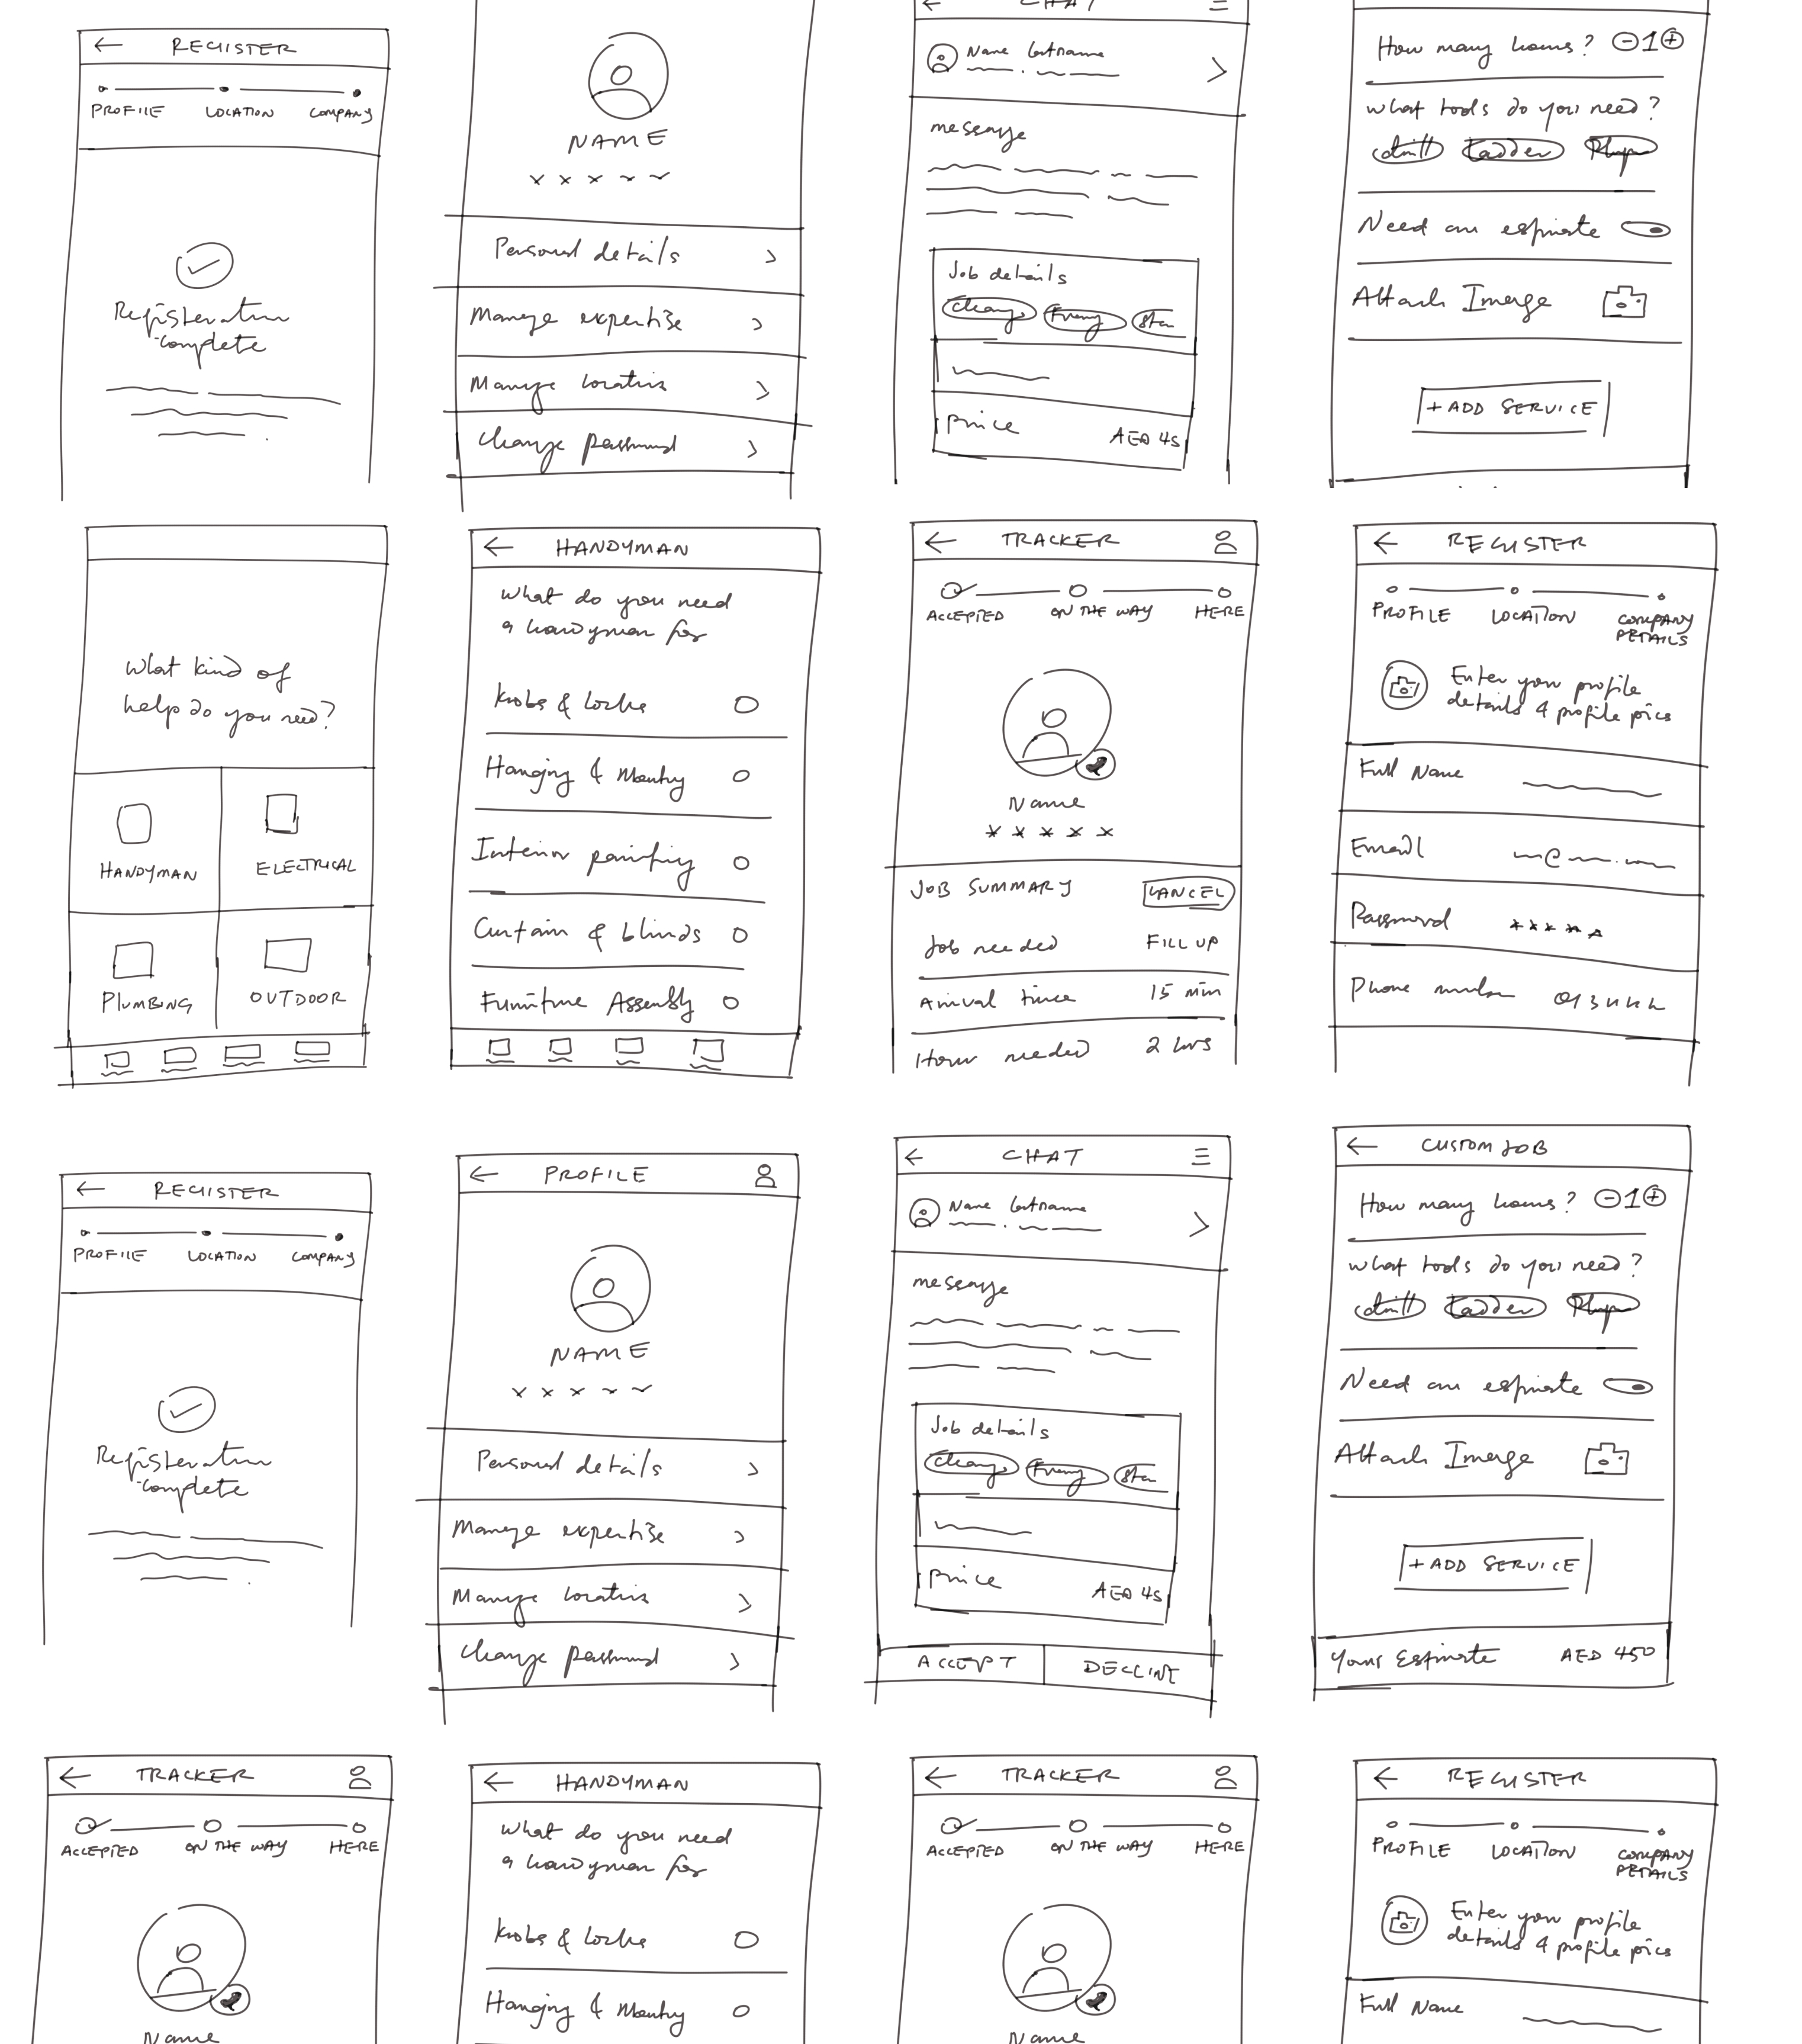 REGISTER
PROFILE LOCATION COMPANY
Registeration
complete
NAME
Personal details
Manage expertise
Manage locations
Change password
CHAT
Name Lastname
message
Job details
Price AED 45
How many hours? 1
What tools do you need?
drill Ladder
Need an estimate
Attach Image
+ ADD SERVICE
What kind of
help do you need?
HANDYMAN ELECTRICAL
PLUMBING OUTDOOR
HANDYMAN
What do you need
a handyman for
Knobs & Locks
Hanging & Mounting
Interior painting
Curtain & blinds
Furniture Assembly
TRACKER
ACCEPTED ON THE WAY HERE
Name
JOB SUMMARY CANCEL
Job needed FILL UP
Arrival time 15 min
Hour needed 2 hrs
REGISTER
PROFILE LOCATION COMPANY
DETAILS
Enter your profile
details & profile pics
Full Name
Email
Password
Phone number
REGISTER
PROFILE LOCATION COMPANY
Registeration
complete
PROFILE
NAME
Personal details
Manage expertise
Manage locations
Change password
CHAT
Name Lastname
message
Job details
Price AED 45
ACCEPT DECLINE
CUSTOM JOB
How many hours? 1
What tools do you need?
drill Ladder
Need an estimate
Attach Image
+ ADD SERVICE
Your Estimate AED 450
TRACKER
ACCEPTED ON THE WAY HERE
Name
HANDYMAN
What do you need
a handyman for
Knobs & Locks
Hanging & Mounting
TRACKER
ACCEPTED ON THE WAY HERE
Name
REGISTER
PROFILE LOCATION COMPANY
DETAILS
Enter your profile
details & profile pics
Full Name